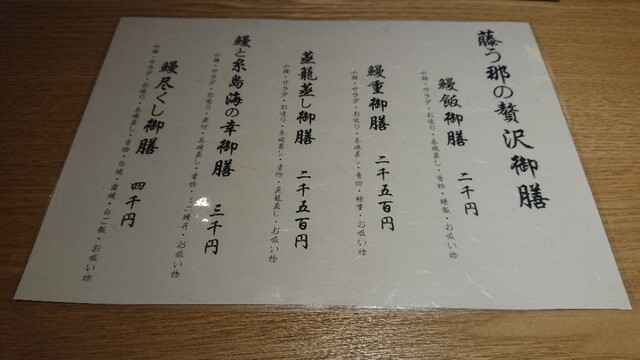 藤う那の贅沢御膳
鰻飯御膳 二千円
小鉢・サラダ・お造り・茶碗蒸し・香物・鰻飯・お吸い物
鰻重御膳 二千五百円
小鉢・サラダ・お造り・茶碗蒸し・香物・鰻重・お吸い物
蒸籠蒸し御膳 二千五百円
小鉢・サラダ・お造り・茶碗蒸し・香物・蒸籠蒸し・お吸い物
鰻と糸島海の幸御膳 三千円
小鉢・サラダ・お造り・煮付・茶碗蒸し・香物・ミニ鰻丼・お吸い物
鰻尽くし御膳 四千円
小鉢・サラダ・お造り・茶碗蒸し・香物・白焼・蒲焼・白ご飯・お吸い物